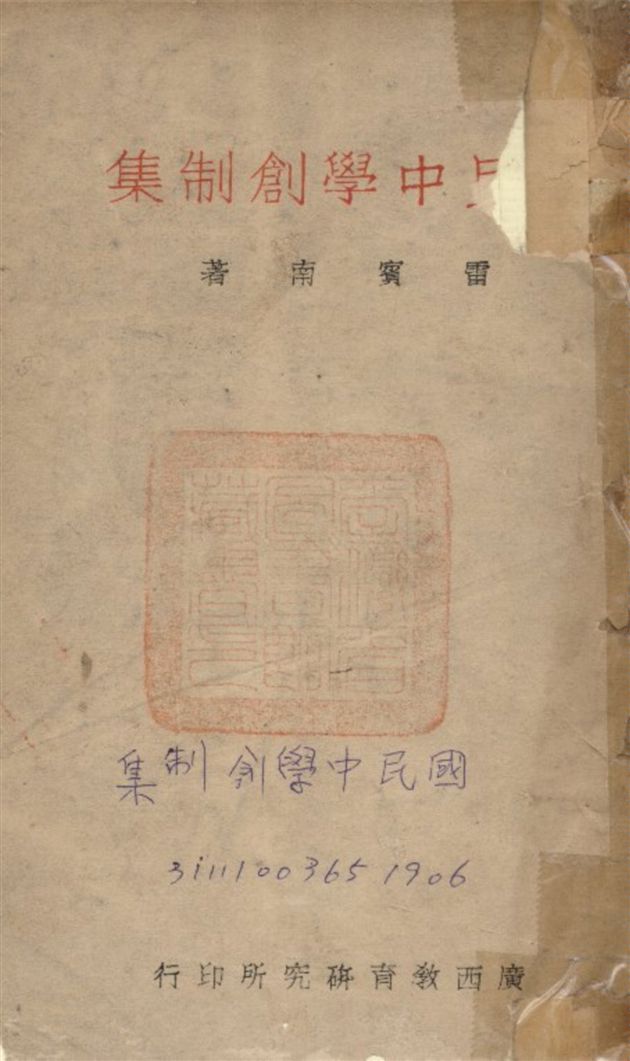 民中學創制集
雷賓南著
國民中學創制集
31111003651906
廣西教育研究所印行